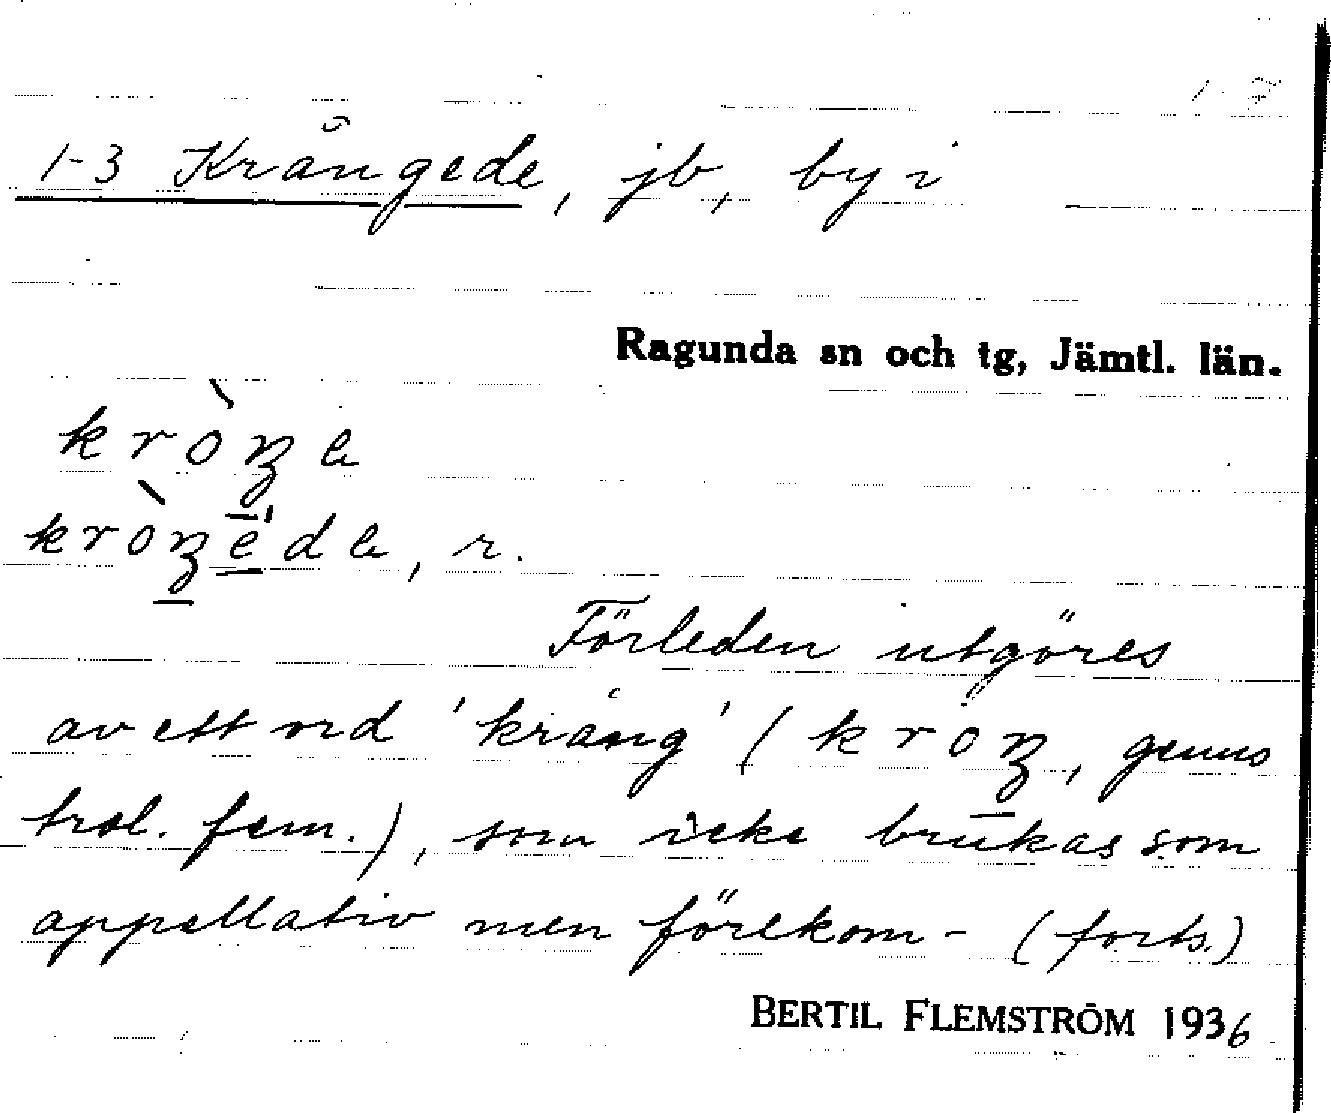 1-7
1-3 Krångede, jb, by i
Ragunda sn och tg, Jämtl. län.
kròŋe
kròŋède, r.
Förleden utgöres
av ett ord 'krång' (kroŋ, genus
trol. fem.), som icke brukas som
appellativ men förekom- (forts.)
BERTIL FLEMSTRÖM 1936